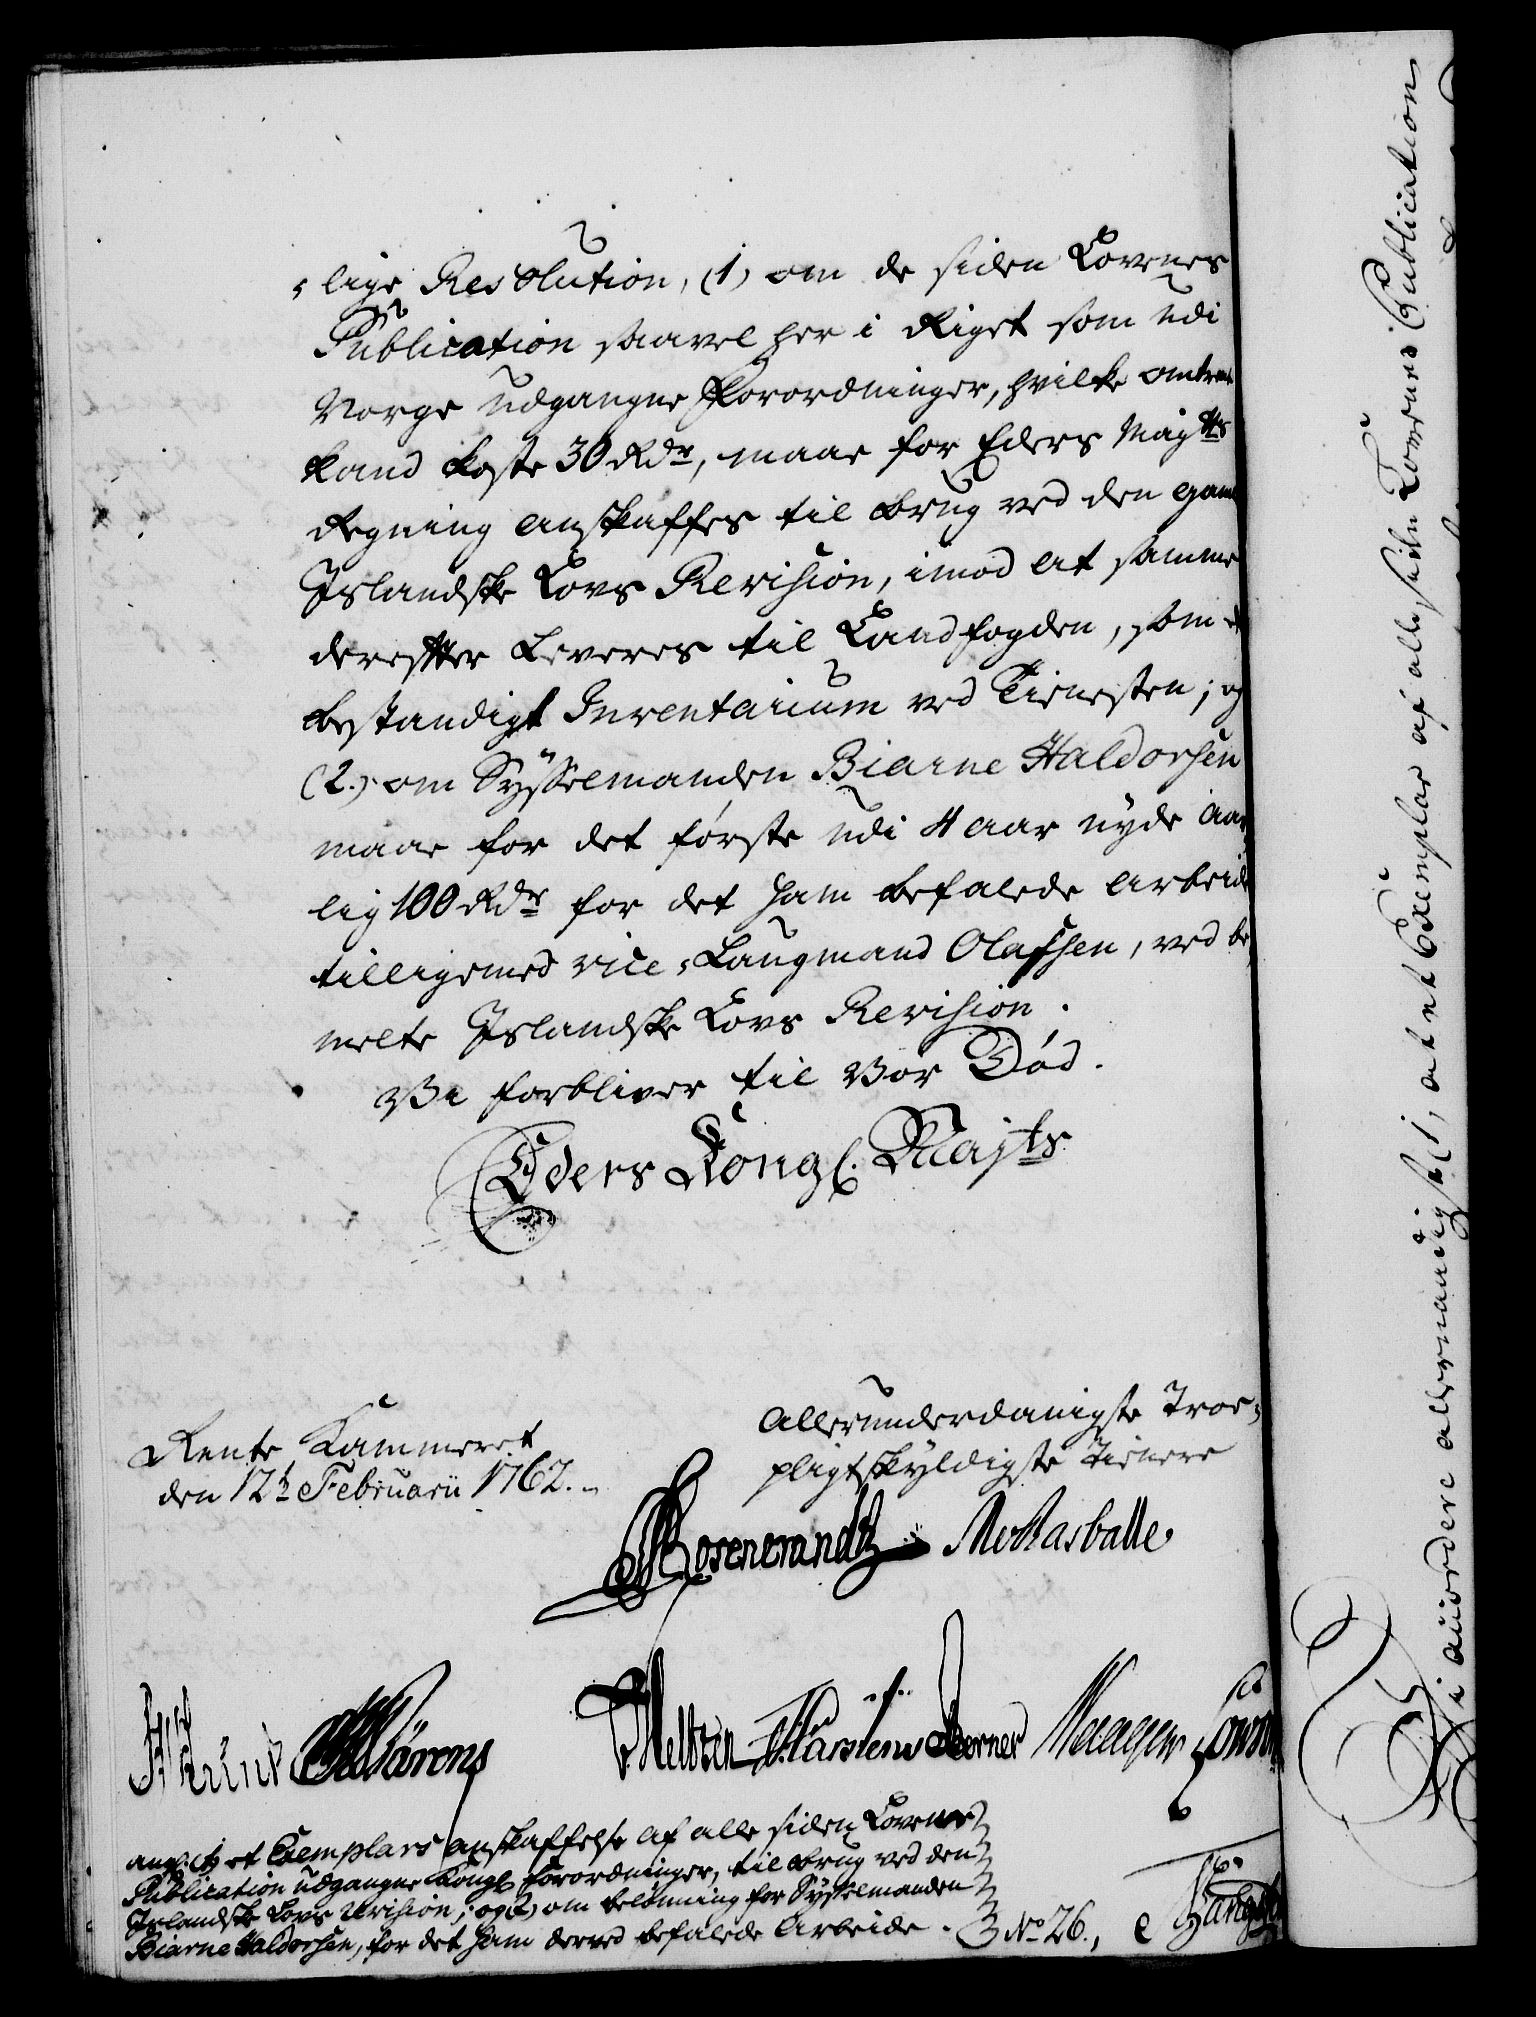 -lige Resolution, (1) om de siden Lovenes
Publication saavel her i Riget som udi
Norge udgangne Forordninger, hvilke omtrent
kand koste 30 Rdr, maae for Eders Maytts
Regning anskaffes til brug ved den gamle
Jslandske Lovs Revision, imod at samme
derefter Leveres til Landfogden, som et
bestandigt Inventarium ved Tienesten; og
(2.) om Sysselmanden Biarne Haldorsen
maae for det første udi 4 aar nyde aar-
lig 100 Rdr for det ham befalede Arbeide
tilligemed vice-Laugmand Olafsen, ved be-
melte Jslandske Lovs Revision.
Vi forbliver til Vor Død.
Eders Kongl. Majts
Rente Kammeret
den 12te Februarii 1762.
Allerunderdanigste Troe-
pligtskyldigste Tienere
Rosencrandtz
Wørens
Meltzen Karstens Berner
ang: (1) et Exemplars anskaffelse af alle siden Lovenes
Publication udgangne Kongl Forordninger, til brug ved den
Jslandske Lovs Revision; og (2) om belønning for Sysselmanden
Biarne Haldorsen, for det ham derved befalede Arbeide.
No 26.,
Vi ansøge allernaadigst (1, at et Exemplar af alle siden Lovenes Publication